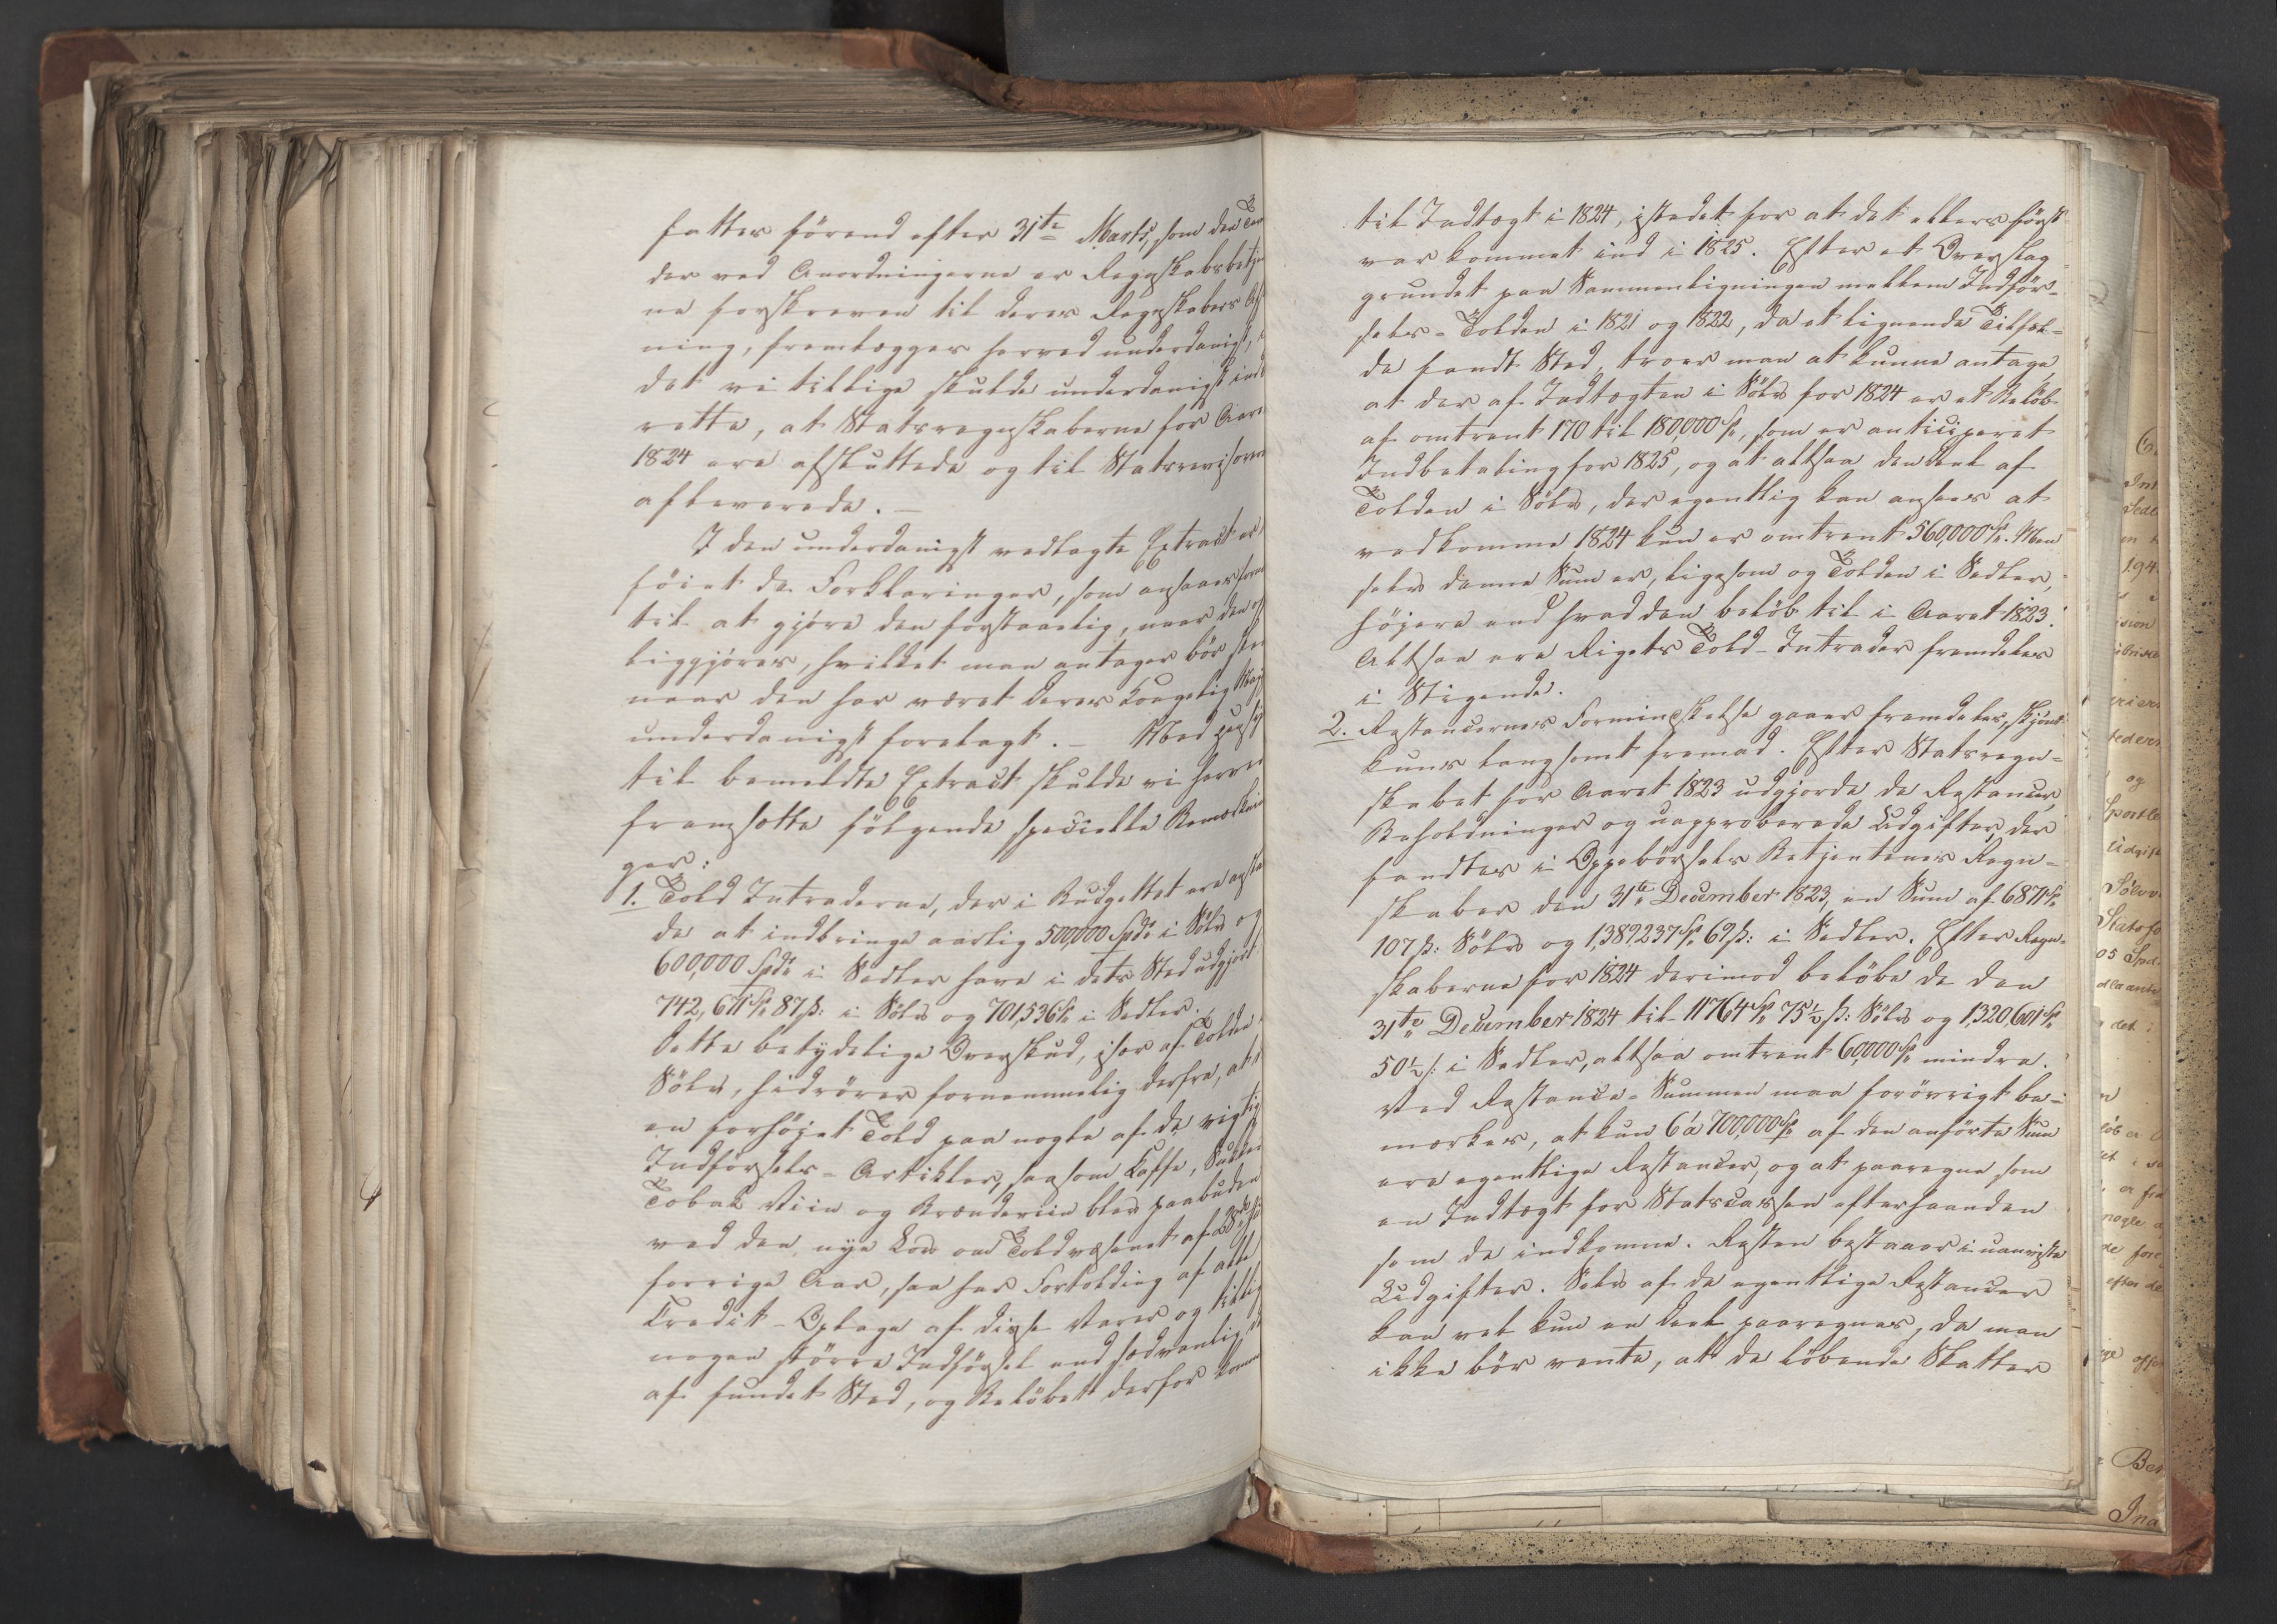 fattes förend efter 31te Marts, som den Ter
der ved Anordningerne er Regnskabsbetjen
ne foreskreven til deres Regnskabers Af
ning, fremlægges herved underdanigst,
det vi tillige skulde underdanigst ind
rette, at Statsregnskaberne for Aaret
1824 ere afsluttede og til Statsrevisoren
afleverede.-
I den underdanigst vedlagte Extract er
föiet de Forklaringer, som ansaaes forn
til at gjöre den forstaaelig, naar den of
liggjöres, hvilket man antager bör skee
naar den har været Deres Kongelig Maj
underdanigst forelagt.- Med Hensÿ
til bemeldte Extract skulde vi herved
fremsætte fölgende specielle Bemærknin
ger:
1. Told Intraderne, der i Budgettet ere ansla
de at indbringe aarlig 500,000 Spd. i Sölv og
600,000 Spd. i Sedler have i dets Sted udgjort
742,671 Sp. 87 ß: i Sölv og 701,536 Sp. i Sedler.
Dette betydelige Overskud, især af Tolden
Sölv, hidrörer fornemmelig derfra, at
en forhöjet Told paa nogle af de vigtig
Indförsels-Artikler, saasom Kaffe, Sukker
Tobak Viin og Brændeviin blev paabuden
ved den nye Lov om Toldvæsenet af 28de
forrige Aar, saa har Fortolding af alle
Credit-Oplage af disse Varer og tillig
nogen större Indförsel end sædvanlig
af fundet Sted, og Belöbet derfor kom
til Indtægt i 1824, istedet for at det ellers först
var kommet ind i 1825. Efter et Overslag
grundet paa Sammenligningen mellem Indför-
sels-Tolden i 1821 og 1822, da et lignende Tilfæl-
de fandt Sted, troer man at kunne antage
at der af Indtægten i Sölv for 1824 er et Belöb
af omtrent 170 til 180,000 Sp, som er anticiperet
Indbetaling for 1825, og at altsaa den Deel af
Tolden i Sölv, der egentlig kan ansees at
vedkomme 1824 kun er omtrent 560,000 Sp. Men
selv denne Sum er, ligesom og Tolden i Sedler,
höjere end hvad den belöb til i Aaret 1823.
Altsaa ere Rigets Told-Intrader fremdeles
i Stigende.
2. Restancernes Formindskelse gaaer fremdeles, skjönt
kuns langsomt fremad. Efter Statsregn-
skabet for Aaret 1823 udgjorde de Restancer,
Beholdninger og uapproberede Udgifter, der
fandtes i Oppebörsels Betjentenes Regn-
skaber den 31te December 1823, en Sum af 6871 Sp
107 ß: Sölv og 1,389237 Sp 69 ß: i Sedler. Efter Regn-
skaberne for 1824 derimod belöbe de den
31te December 1824 til 11764 Sp 75½ ß: Sölv og 1,320,601 Sp
50½ ß: i Sedler, altsaa omtrent 60,000 Sp mindre.
Ved Restance-Summen maa forövrigt be-
mærkes, at kun 6 à 700,000 Sp af den anförte Sum
ere egentlige Restancer, og at paaregne som
en Indtægt for Statscassen efterhaanden
som de indkomme. Resten bestaaer i uanviste
Udgifter. Selv af de egentlige Restancer
kan vel kun en Deel paaregnes, da man
ikke bör vente, at de löbende Skatter